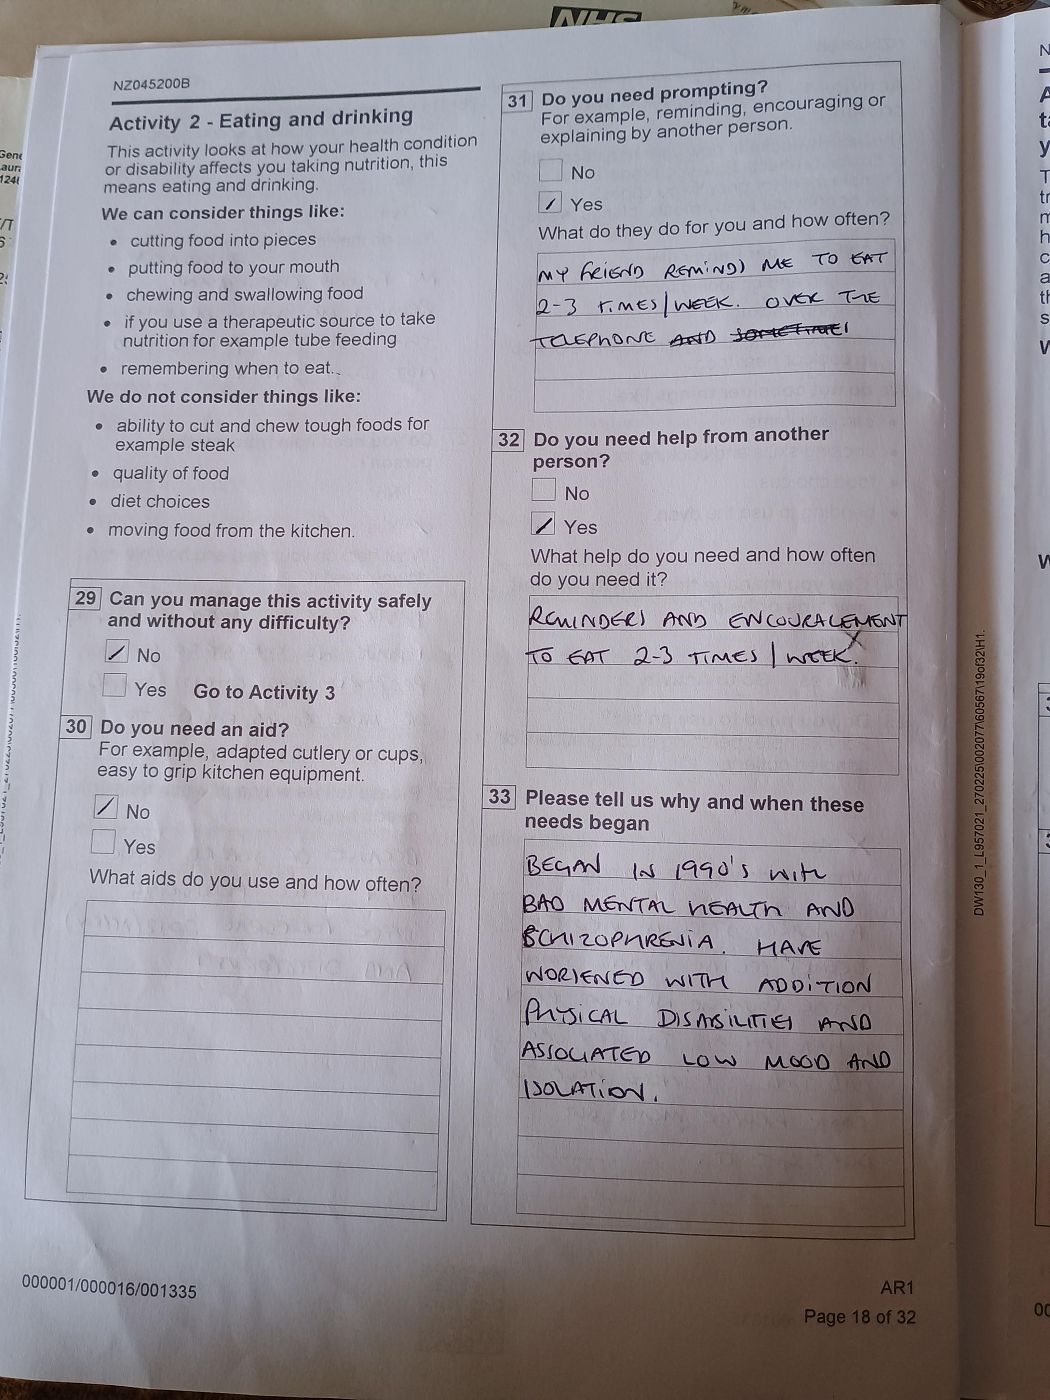 NHS
NZ045200B
Activity 2 - Eating and drinking
This activity looks at how your health condition
or disability affects you taking nutrition, this
means eating and drinking.
We can consider things like:
• cutting food into pieces
• putting food to your mouth
• chewing and swallowing food
• if you use a therapeutic source to take
nutrition for example tube feeding
• remembering when to eat.
We do not consider things like:
• ability to cut and chew tough foods for
example steak
• quality of food
• diet choices
• moving food from the kitchen.
29 Can you manage this activity safely
and without any difficulty?
No
Yes Go to Activity 3
30 Do you need an aid?
For example, adapted cutlery or cups,
easy to grip kitchen equipment.
No
Yes
What aids do you use and how often?
31 Do you need prompting?
For example, reminding, encouraging or
explaining by another person.
No
Yes
What do they do for you and how often?
MY FRIEND REMINDS ME TO EAT
2-3 TIMES/WEEK. OVER THE
TELEPHONE AND SOMETIMES
32 Do you need help from another
person?
No
Yes
What help do you need and how often
do you need it?
REMINDERS AND ENCOURAGEMENT
TO EAT 2-3 TIMES/WEEK.
33 Please tell us why and when these
needs began
BEGAN IN 1990'S WITH
BAD MENTAL HEALTH AND
SCHIZOPHRENIA. HAVE
WORSENED WITH ADDITION
PHYSICAL DISABILITIES AND
ASSOCIATED LOW MOOD AND
ISOLATION.
000001/000016/001335
AR1
Page 18 of 32
DW130_1_L957021_270225\002077\60567\19of32\H1.